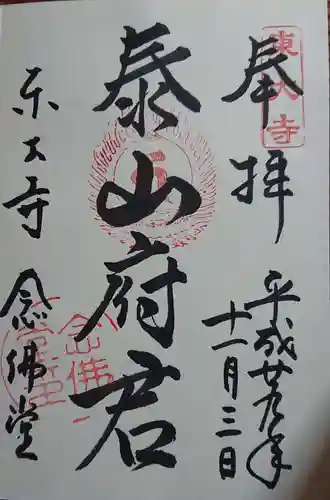 奉拝
東大寺
平成廿九年
十一月三日
泰山府君
东大寺
念佛堂
念佛堂